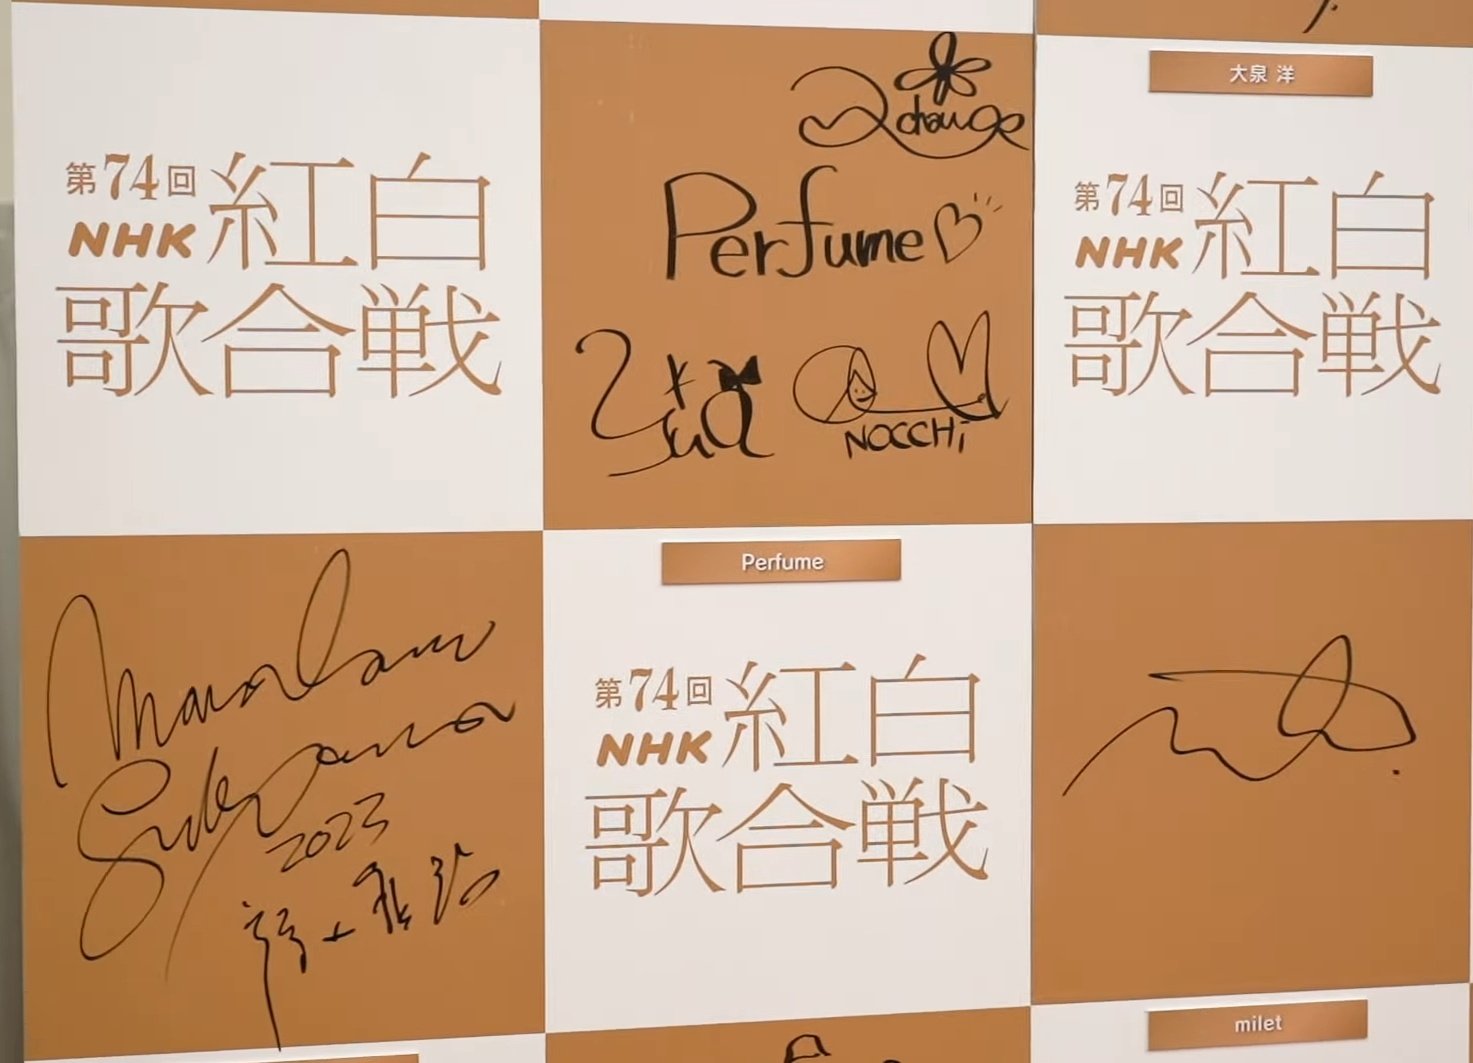 大泉 洋
第74回
NHK
紅白
歌合戦
a~chan
Perfume
NOCCHi
第74回
NHK
紅白
歌合戦
Masaharu
2023
Perfume
第74回
NHK
紅白
歌合戦
milet